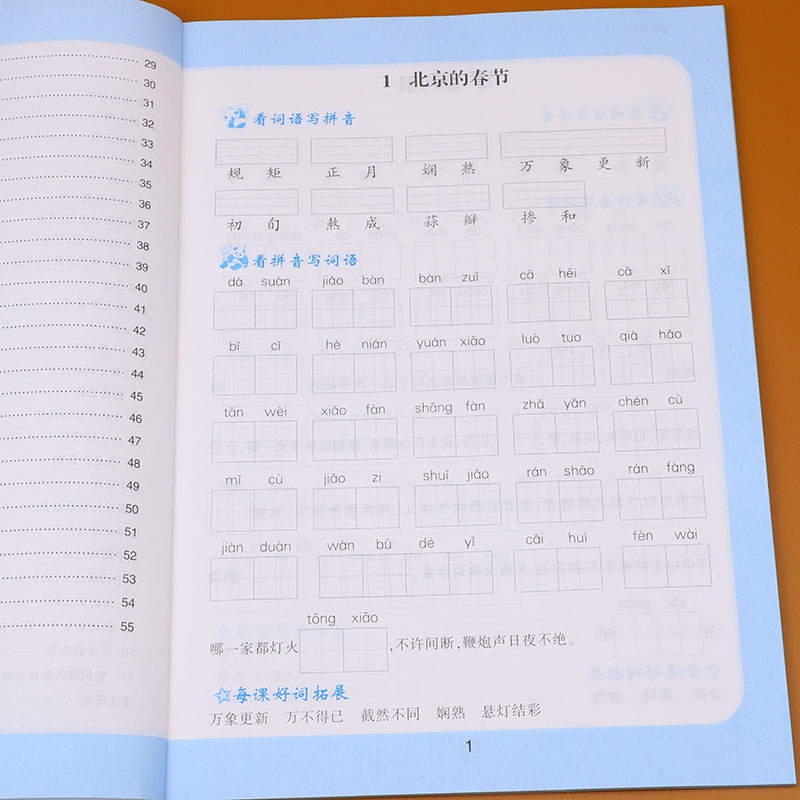 29
30
31
32
33
34
35
36
37
38
39
40
41
42
43
44
45
46
47
48
49
50
51
52
53
54
55
1 北京的春节
看词语写拼音
规 矩 正 月 娴 熟 万 象 更 新
初 旬 熬 成 蒜 瓣 掺 和
看拼音写词语
dà suàn jiǎo bàn bàn zuǐ cā hēi cā xǐ
bǐ cǐ hè nián yuán xiāo luò tuo qià hǎo
tān wèi xiǎo fàn shāng fàn zhǎ yǎn chén cù
mǐ cù jiǎo zi shuǐ jiǎo rán shāo rán fàng
jiàn duàn wàn bù dé yǐ cǎi huì fèn wài
tōng xiāo
哪一家都灯火 ,不许间断,鞭炮声日夜不绝。
每课好词拓展
万象更新 万不得已 截然不同 娴熟 悬灯结彩
1